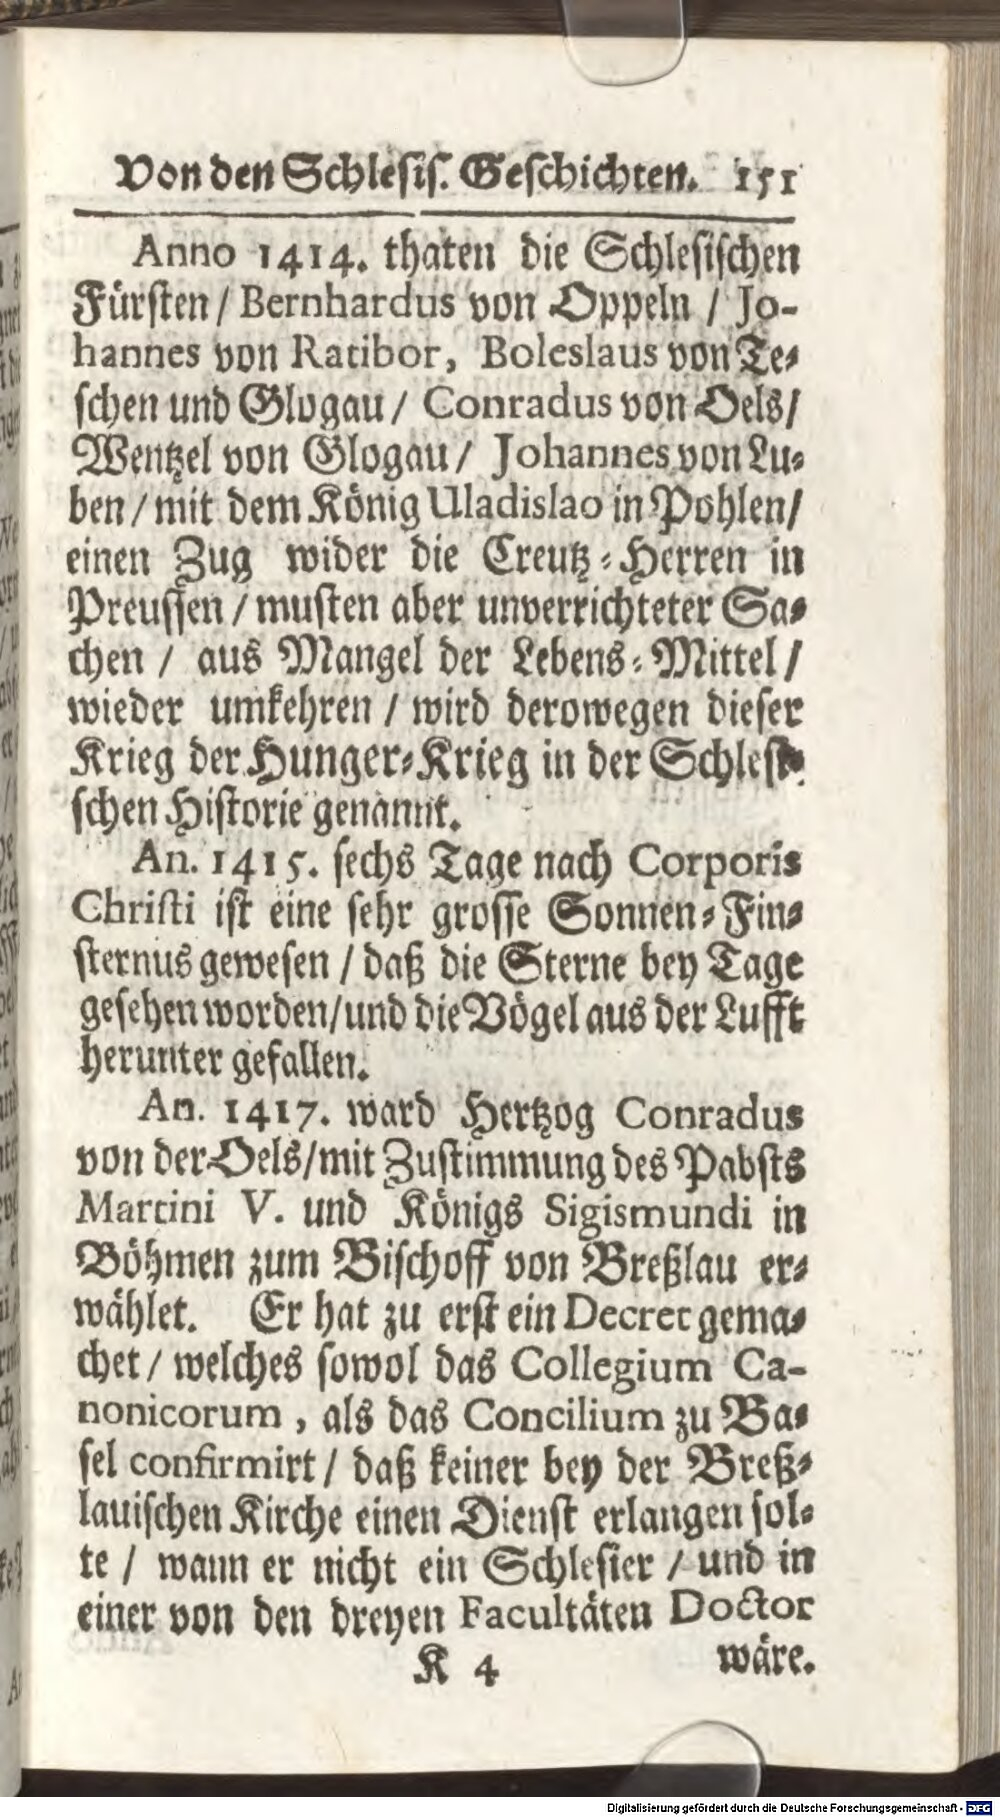 Von den Schlesis. Geschichten. 151
Anno 1414. thaten die Schlesischen
Fürsten / Bernhardus von Oppeln / Jo-
hannes von Ratibor, Boleslaus von Te-
schen und Glogau / Conradus von Oels /
Wentzel von Glogau / Johannes von Lu-
ben / mit dem König Uladislao in Pohlen /
einen Zug wider die Creutz-Herren in
Preussen / musten aber unverrichteter Sa-
chen / aus Mangel der Lebens-Mittel /
wieder umkehren / wird derowegen dieser
Krieg der Hunger-Krieg in der Schlesi-
schen Historie genannt.
An. 1415. sechs Tage nach Corporis
Christi ist eine sehr grosse Sonnen-Fin-
sternus gewesen / daß die Sterne bey Tage
gesehen worden / und die Vögel aus der Lufft
herunter gefallen.
An. 1417. ward Hertzog Conradus
von der Oels / mit Zustimmung des Pabsts
Martini V. und Königs Sigismundi in
Böhmen zum Bischoff von Breßlau er-
wählet. Er hat zu erst ein Decret gema-
chet / welches sowol das Collegium Ca-
nonicorum, als das Concilium zu Ba-
sel confirmirt / daß keiner bey der Breß-
lauischen Kirche einen Dienst erlangen sol-
te / wann er nicht ein Schlesier / und in
einer von den dreyen Facultäten Doctor
K 4 wäre.
Digitalisierung gefördert durch die Deutsche Forschungsgemeinschaft - DFG